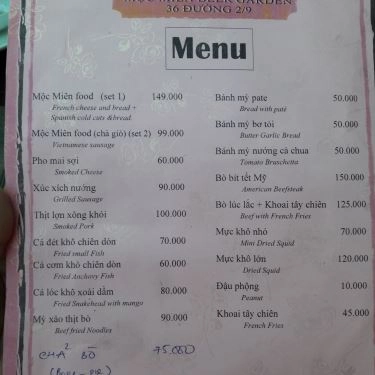 MỘC MIÊN BEER GARDEN
36 ĐƯỜNG 2/9
Menu
Mộc Miên food (set 1) 149.000
French cheese and bread +
Spanish cold cuts &bread.
Mộc Miên food (chả giò) (set 2) 99.000
Vietnamese sausage
Pho mai sợi 60.000
Smoked Cheese
Xúc xích nướng 90.000
Grilled Sausage
Thịt lợn xông khói 100.000
Smoked Pork
Cá đét khô chiên dòn 70.000
Fried small Fish
Cá cơm khô chiên dòn 60.000
Fried Anchovy Fish
Cá lóc khô xoài dầm 80.000
Fried Snakehead with mango
Mỳ xào thịt bò 90.000
Beef fried Noodles
CHẢ BÒ 75.000
Bánh mỳ pate 50.000
Bread with paté
Bánh mỳ bơ tỏi 50.000
Butter Garlic Bread
Bánh mỳ nướng cà chua 50.000
Tomato Bruschetta
Bò bít tết Mỹ 150.000
American Beefsteak
Bò lúc lắc + Khoai tây chiên 125.000
Beef with French Fries
Mực khô nhỏ 70.000
Mini Dried Squid
Mực khô lớn 120.000
Dried Squid
Đậu phộng 10.000
Peanut
Khoai tây chiên 45.000
French Fries